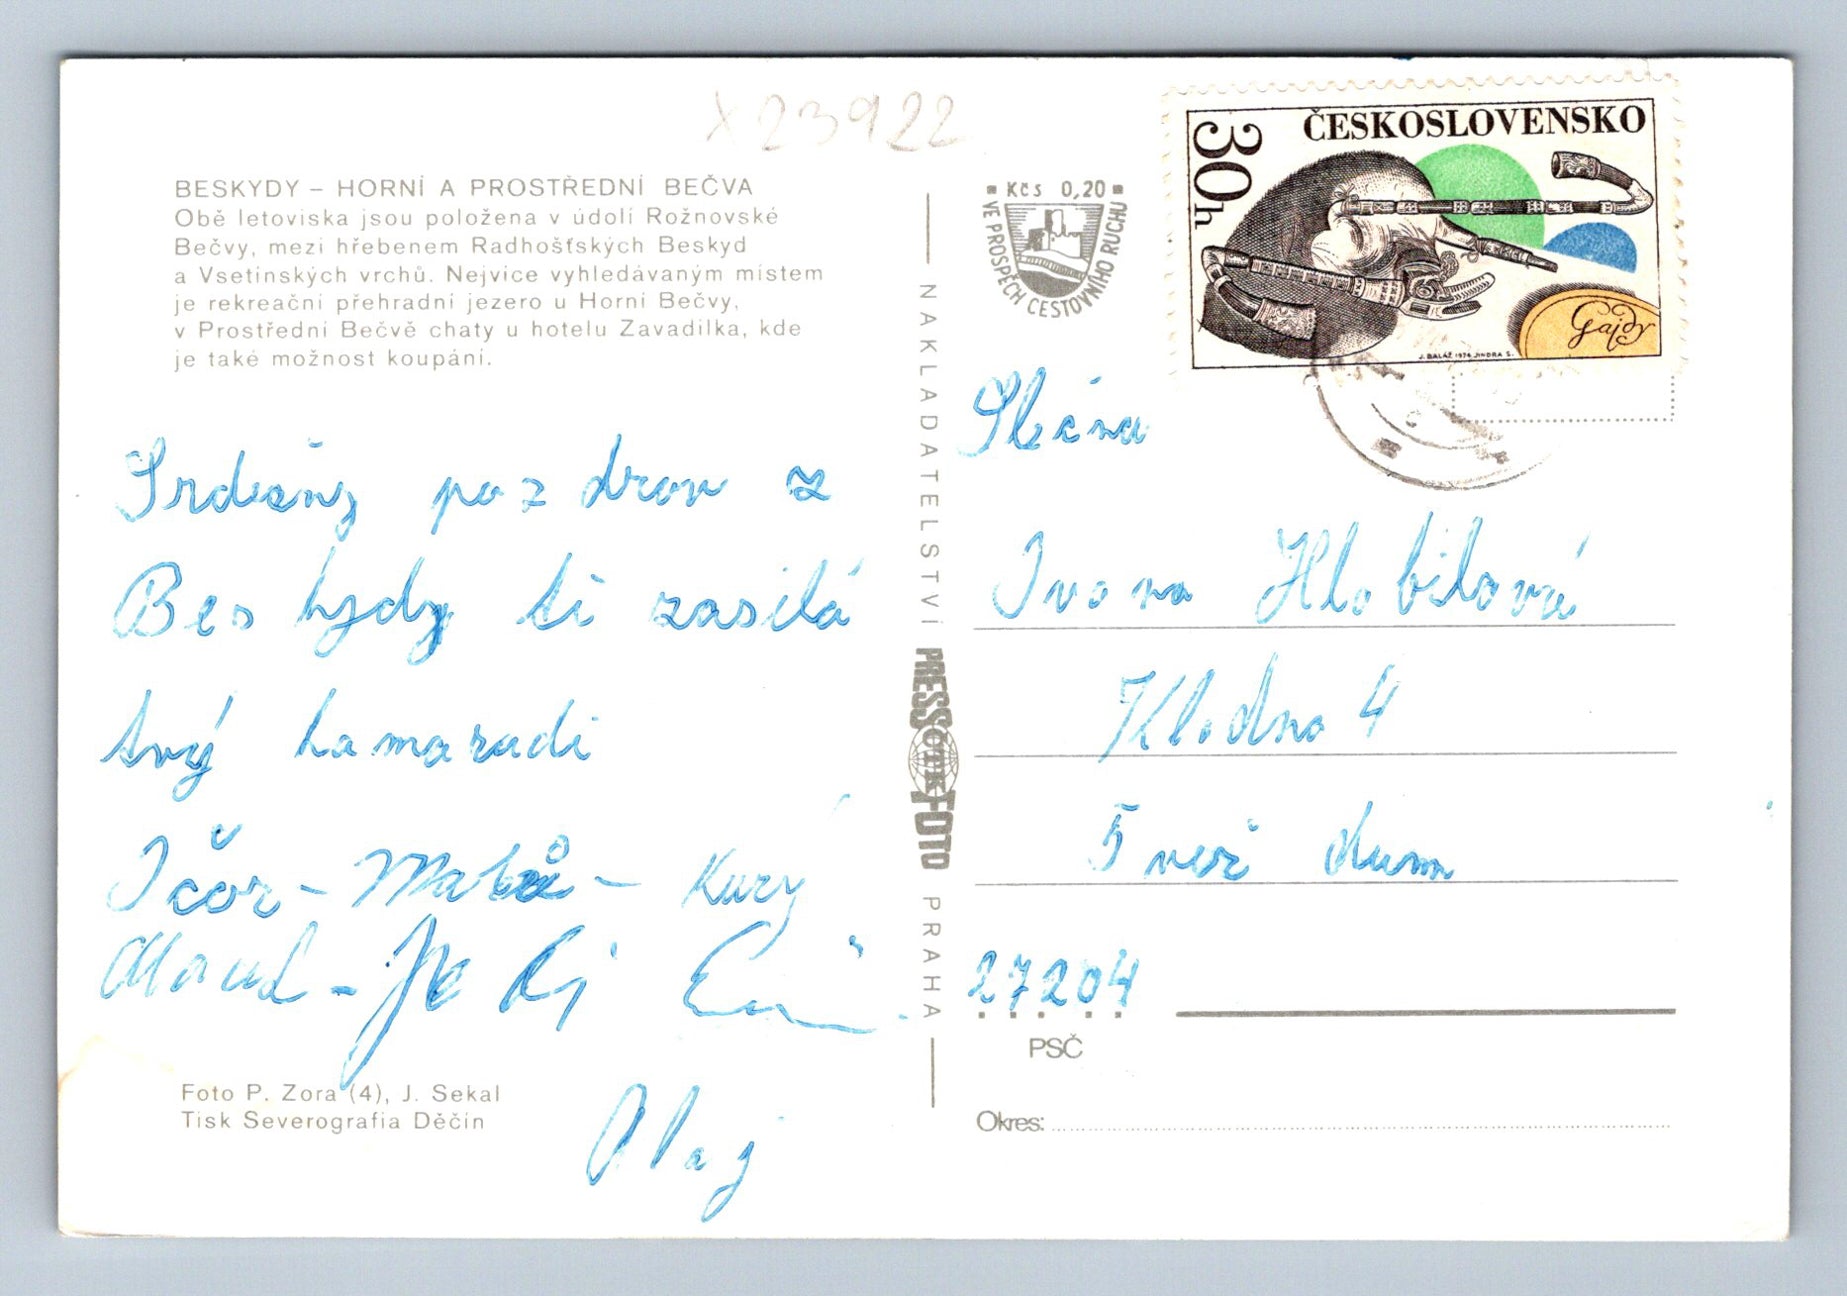 X23922
BESKYDY – HORNÍ A PROSTŘEDNÍ BEČVA
Obě letoviska jsou položena v údolí Rožnovské
Bečvy, mezi hřebenem Radhošťských Beskyd
a Vsetínských vrchů. Nejvíce vyhledávaným místem
je rekreační přehradní jezero u Horní Bečvy,
v Prostřední Bečvě chaty u hotelu Zavadilka, kde
je také možnost koupání.
Srdečný pozdrav z
Beskydy ti zasílá
tvý kamaradi
Kurý
Olaj
Foto P. Zora (4), J. Sekal
Tisk Severografia Děčín
NAKLADATELSTVÍ
PRESSFOTO
ČTK
PRAHA
Kčs 0,20
VE PROSPĚCH CESTOVNÍHO RUCHU
ČESKOSLOVENSKO
30h
Gajdy
J. BALÁŽ 1974 JINDRA S.
Slečna
Ivona Hlobilová
Kladno 4
5 věž dum
27204
PSČ
Okres: